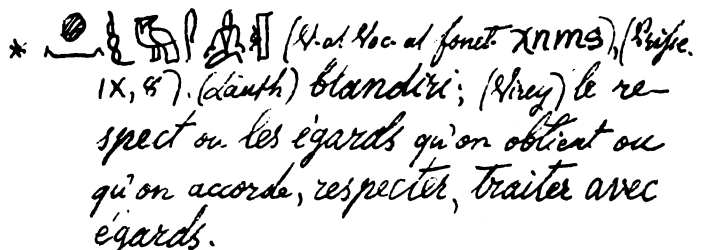 * (V. al Voc. al fonet. xnms), (Prisse.
IX, 8). (Lauth) blandiri; (Virey) le re-
spect ou les égards qu'on obtient ou
qu'on accorde, respecter, traiter avec
égards.